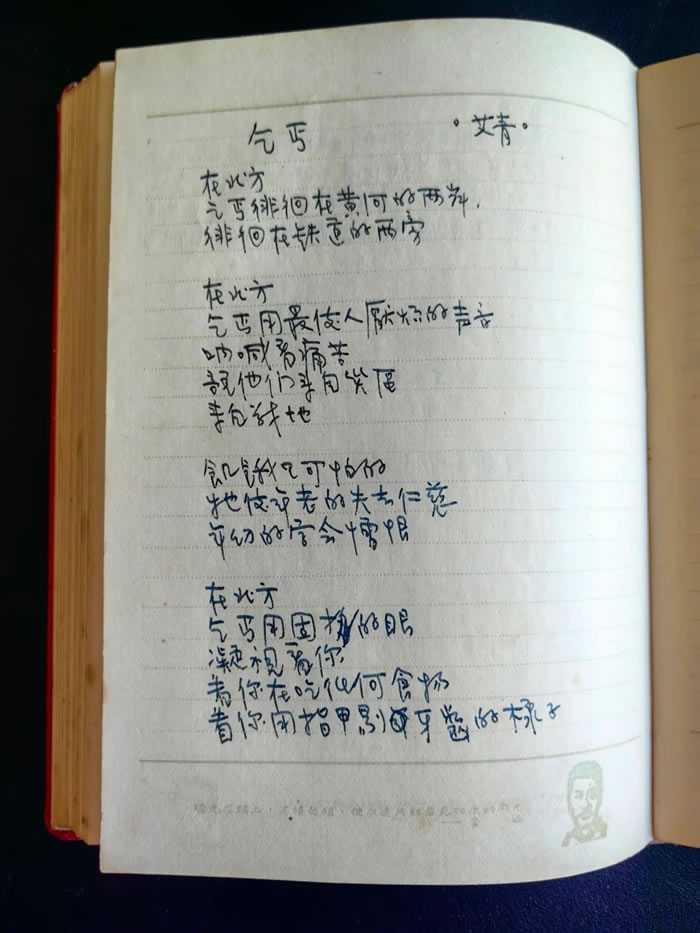 乞丐 。艾青。
在北方
乞丐徘徊在黄河的两岸,
徘徊在鉄道的两旁
在北方
乞丐用最使人厭烦的声音
呐喊着痛苦
説他们来自災區
来自战地
飢餓是可怕的
牠使年老的失去仁慈
年幼的学会憎恨
在北方
乞丐用固执的眼
凝視着你
看你在吃任何食物
看你用指甲剔牙齒的樣子